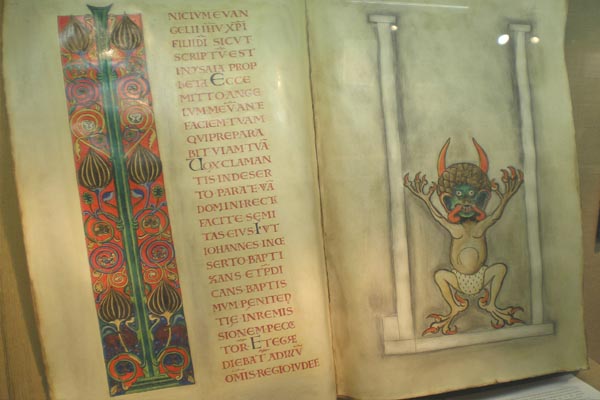 NICIVM EVAN
GELII IHV XPI
FILII DI SICVT
SCRIPTV EST
IN YSAIA PROP
HETA ECCE
MITTO ANGE
LVM MEVM ANTE
FACIEM TVAM
QVI PREPARA
BIT VIAM TVĀ
VOX CLAMAN
TIS IN DESER
TO PARATE VĀ
DOMINI RECT
FACITE SEMI
TAS EIVS FVIT
IOHANNES IN
SERTO BAPTI
ZANS ET PDI
CANS BAPTIS
MVM PENITEN
TIE IN REMIS
SIONEM PECC
TOR ET EGRE
DIEBAT AD
OMIS REGIO IVDEE